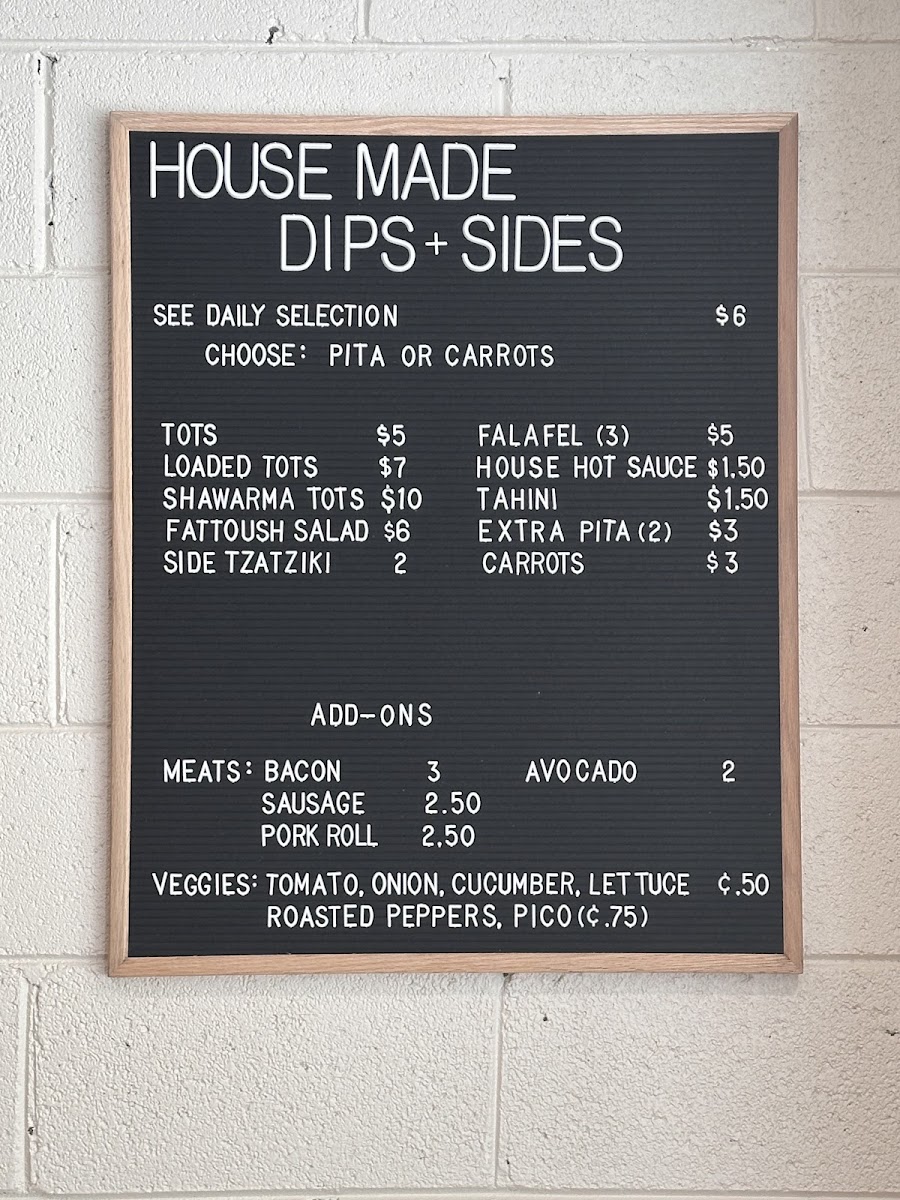 HOUSE MADE
DIPS + SIDES
SEE DAILY SELECTION $6
CHOOSE: PITA OR CARROTS
TOTS $5 FALAFEL (3) $5
LOADED TOTS $7 HOUSE HOT SAUCE $1.50
SHAWARMA TOTS $10 TAHINI $1.50
FATTOUSH SALAD $6 EXTRA PITA (2) $3
SIDE TZATZIKI 2 CARROTS $3
ADD-ONS
MEATS: BACON 3 AVOCADO 2
SAUSAGE 2.50
PORK ROLL 2,50
VEGGIES: TOMATO, ONION, CUCUMBER, LETTUCE ¢.50
ROASTED PEPPERS, PICO (¢.75)